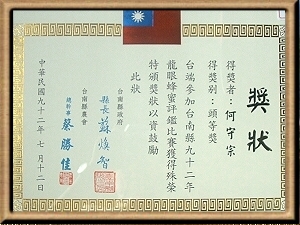 獎狀
得獎者：何守宗
得獎別：頭等獎
台端參加台南縣九十二年
龍眼蜂蜜評鑑比賽獲得殊榮
特頒獎狀以資鼓勵
此狀
台南縣政府
縣長 蘇煥智
台南縣農會
總幹事 蔡勝佳
中華民國九十二年七月十二日